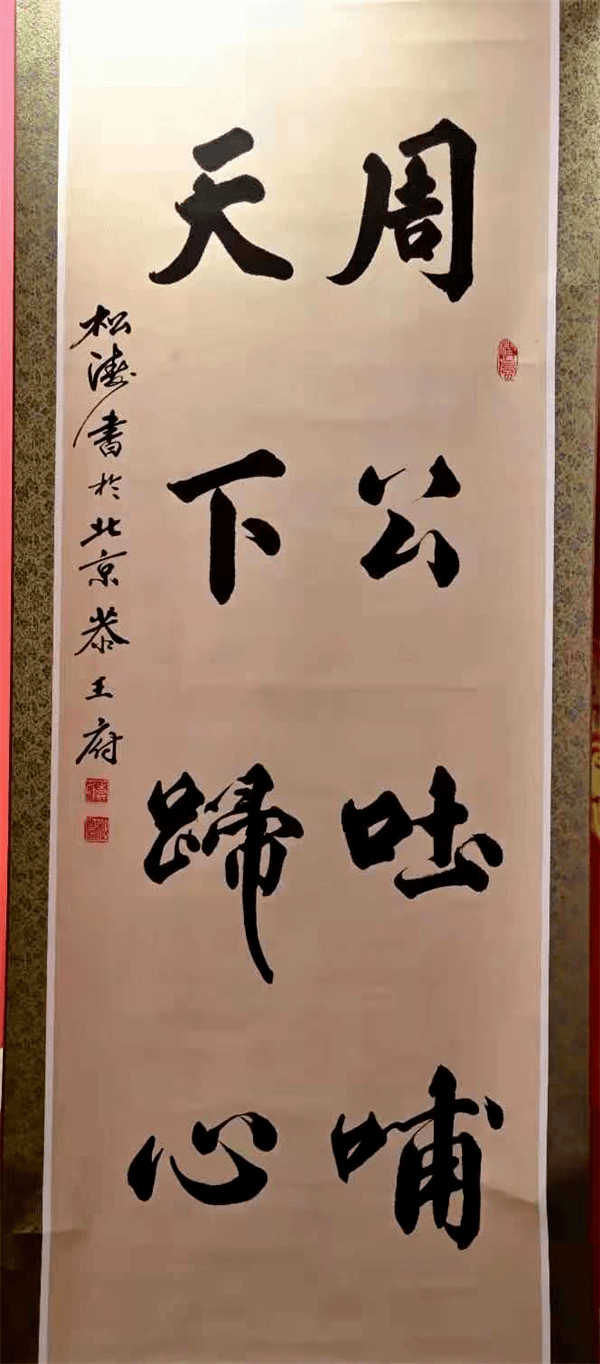 周公吐哺
天下歸心
松涛書於北京恭王府